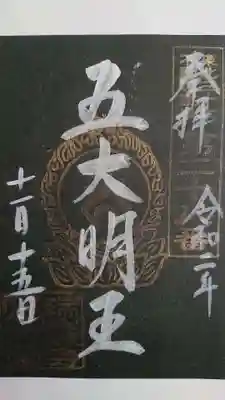 登拝
令和二年
五大明王
十一月十五日